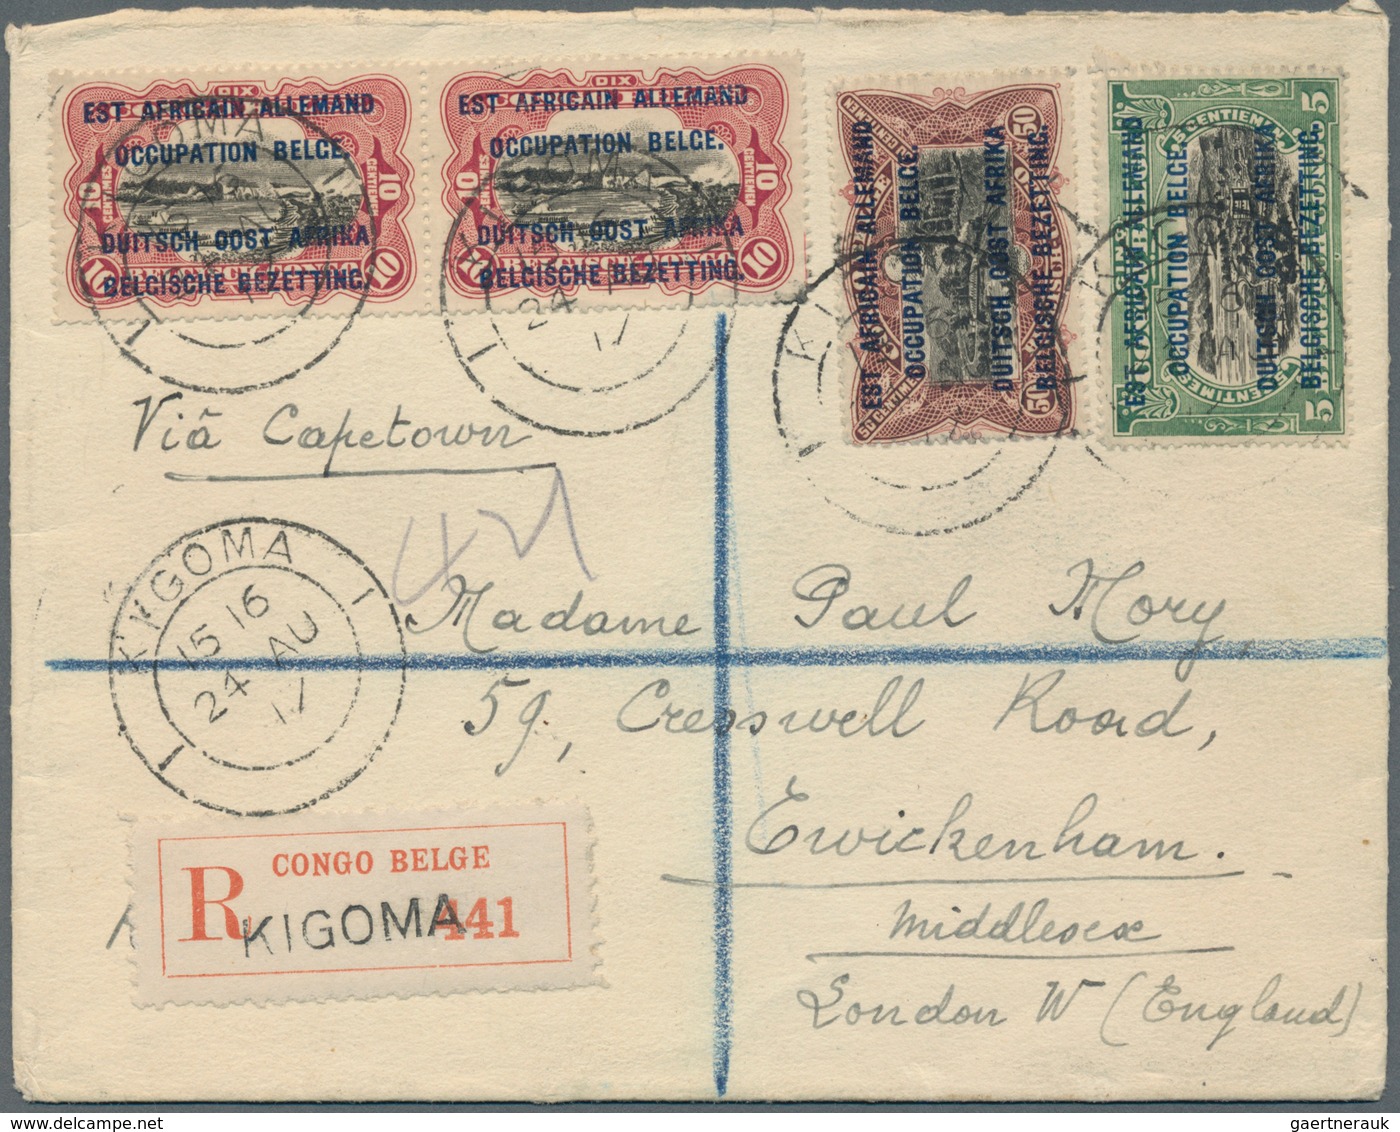 DIX
EST AFRICAIN ALLEMAND
OCCUPATION BELGE.
DUITSCH OOST AFRIKA
BELGISCHE BEZETTING.
10 CENTIMES
10 CENTIEMEN
10
10
DIX
EST AFRICAIN ALLEMAND
OCCUPATION BELGE.
DUITSCH OOST AFRIKA
BELGISCHE BEZETTING.
10 CENTIMES
10 CENTIEMEN
10
10
EST AFRICAIN ALLEMAND
OCCUPATION BELGE.
DUITSCH OOST AFRIKA
BELGISCHE BEZETTING.
50
50
50 CENTIMES
EST AFRICAIN ALLEMAND
OCCUPATION BELGE.
DUITSCH OOST AFRIKA
BELGISCHE BEZETTING.
5
5
CENTIEMEN
CENTIMES
24
17
Viâ Capetown
KIGOMA
15 16
24 AU
17
Madame Paul Mory,
59, Cresswell Road,
Twickenham.
Middlesex
London W (England)
R
CONGO BELGE
KIGOMA
441
gaertnerauk @ delcampe.net